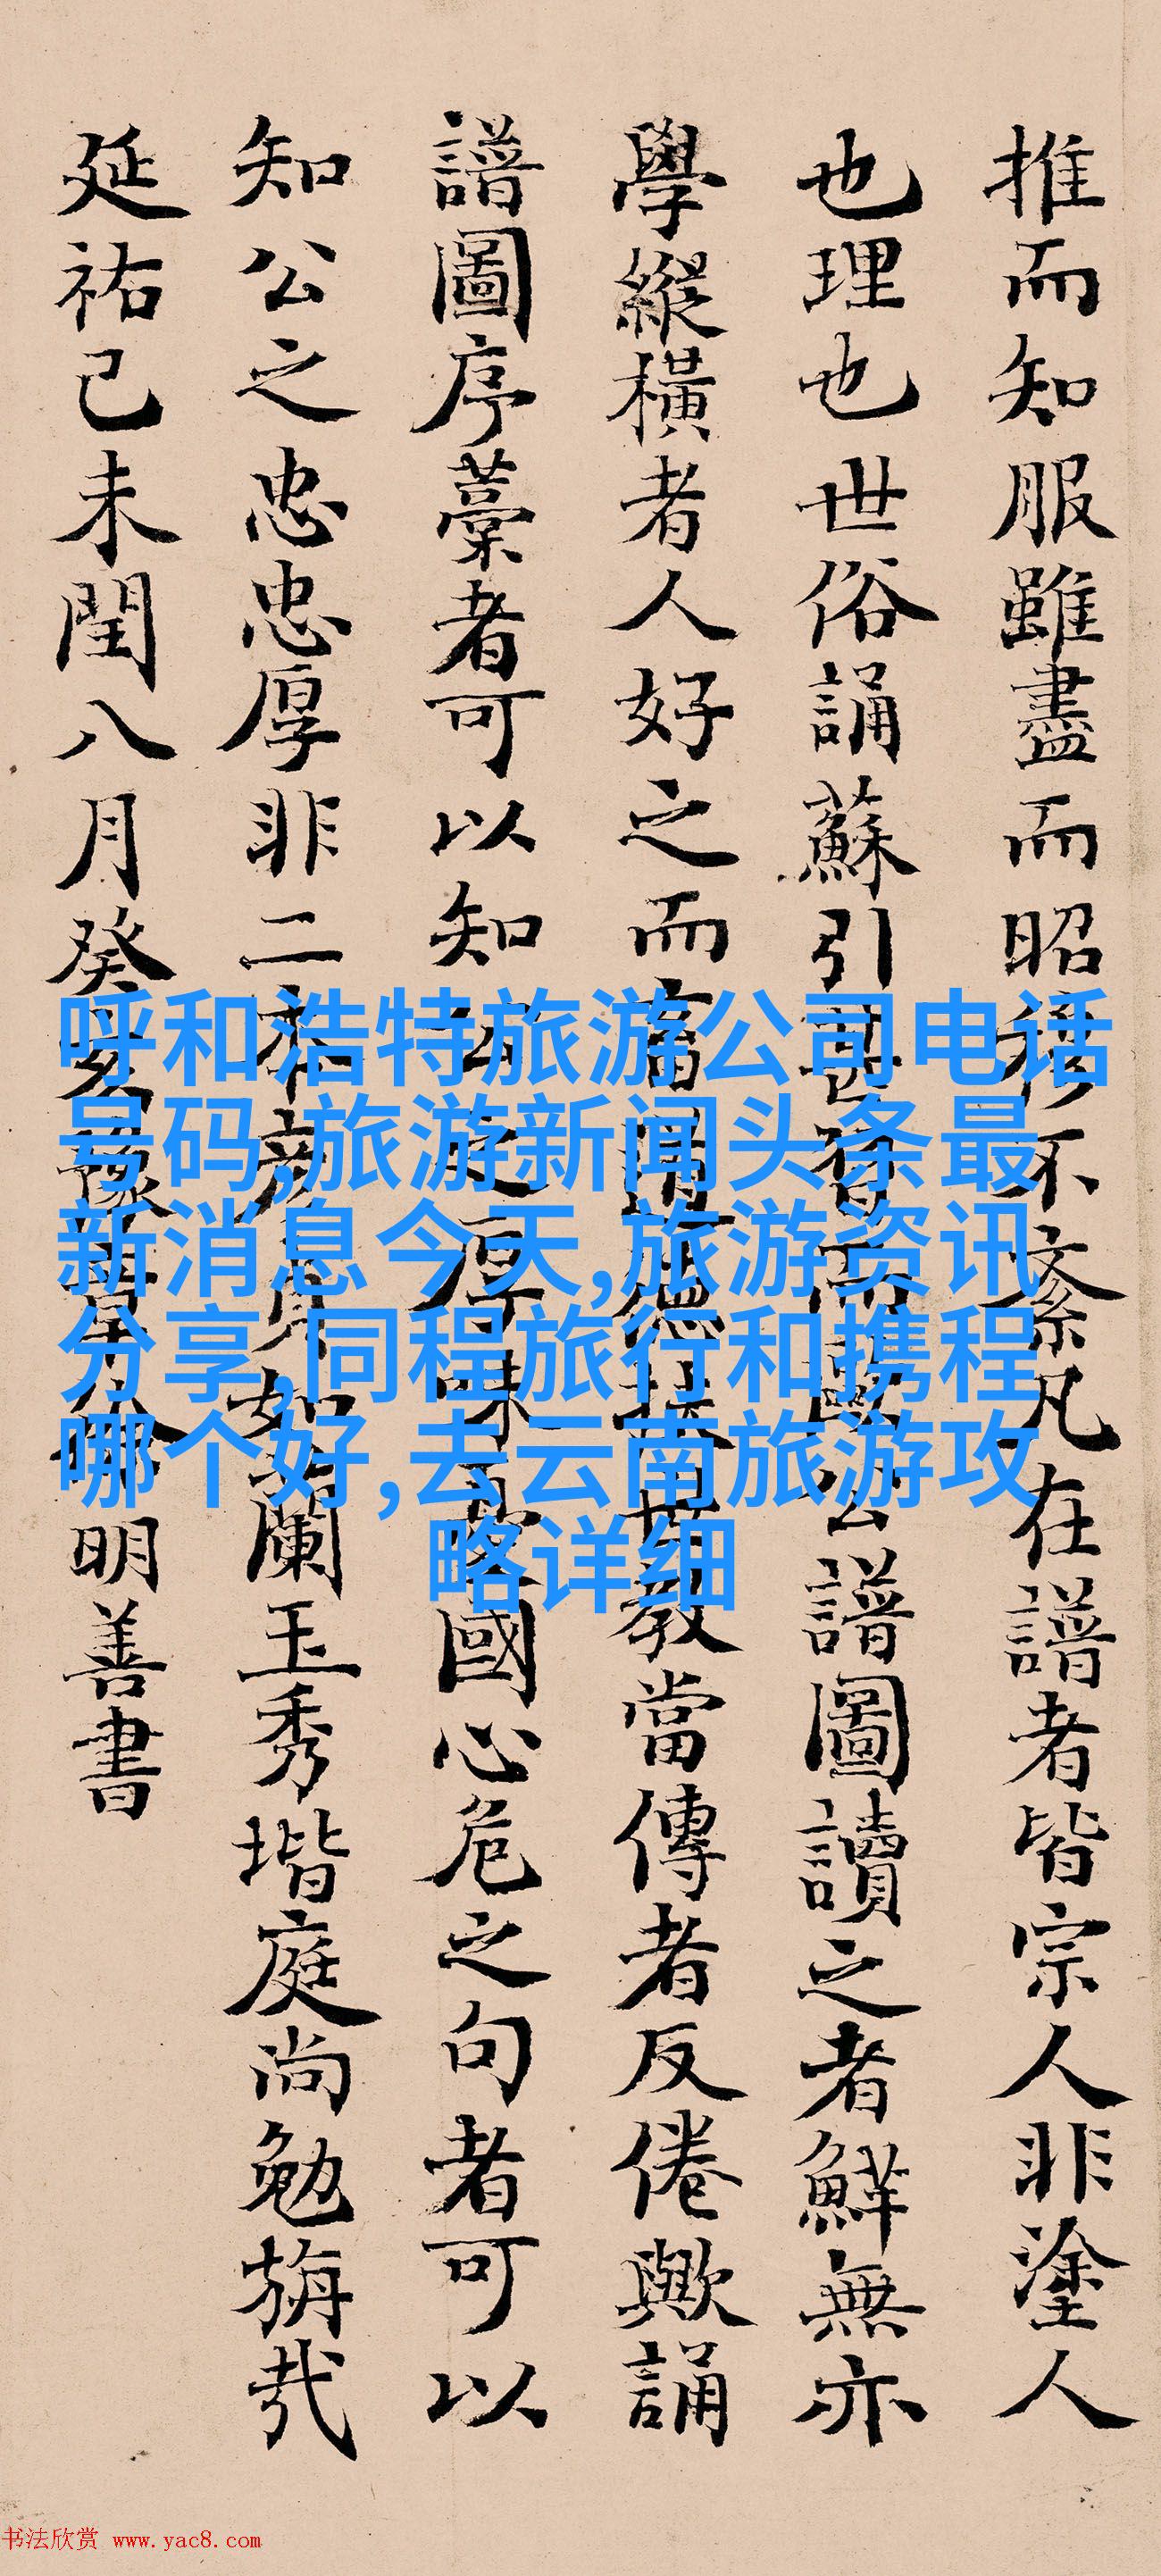 推而知服雖盡而昭穆不紊凡在譜者皆宗人非塗人
也理也世俗誦蘇引甚習而歐公譜圖讀之者鮮無亦
學縱橫者人好之而畜道德捄世教當傳者反倦歟誦
譜圖序藁者可以知公之厚味夢國心危之句者可以
知公之忠忠厚非二本彥昇如芳蘭玉秀堦庭尚勉旃哉
延祐己未閏八月癸亥豫章後明善書
呼和浩特旅游公司电话
号码,旅游新闻头条最
新消息今天,旅游资讯
分享,同程旅行和携程
哪个好,去云南旅游攻
略详细
书法欣赏 www.yac8.com